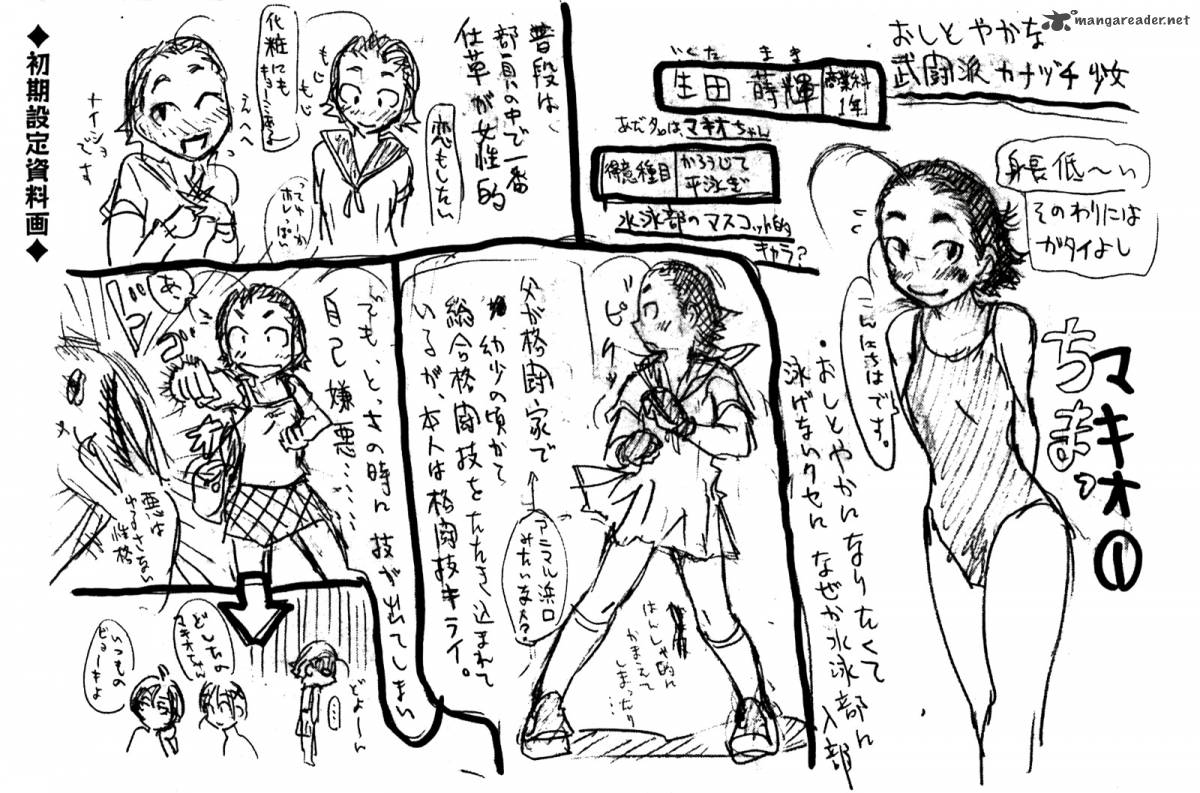 mangareader.net
おしとやかな
武闘派カナヅチ少女
いくた まき
生田 蒔輝
商業科
1年
あだ名はマキオちゃん
得意種目
かろうじて
平泳ぎ
水泳部のマスコット的
キャラ?
身長低〜い
そのわりには
ガタイよし
こんにちはです。
ちま。
マキオ①
・おしとやかになりたくて
泳げないクセになぜか水泳部に
入部
普段は、
部員の中で一番
仕草が女性的
恋もしたい
もじ
もじ
化粧にも
キョーミある
えへへ
ナイショ
です
◆初期設定資料画◆
父が格闘家で
アニマル浜口
みたいな人?
幼少の頃から
総合格闘技をたたき込まれて
いるが、本人は格闘技キライ。
ピク
はんしゃ的に
かまえて
しまったり
…
でも、とっさの時に技が出てしまい
自己嫌悪……
あ、
悪は
ゆるさない
性格
どよーん
…
どしたの
マキオちゃん
いつもの
ビョーキよ